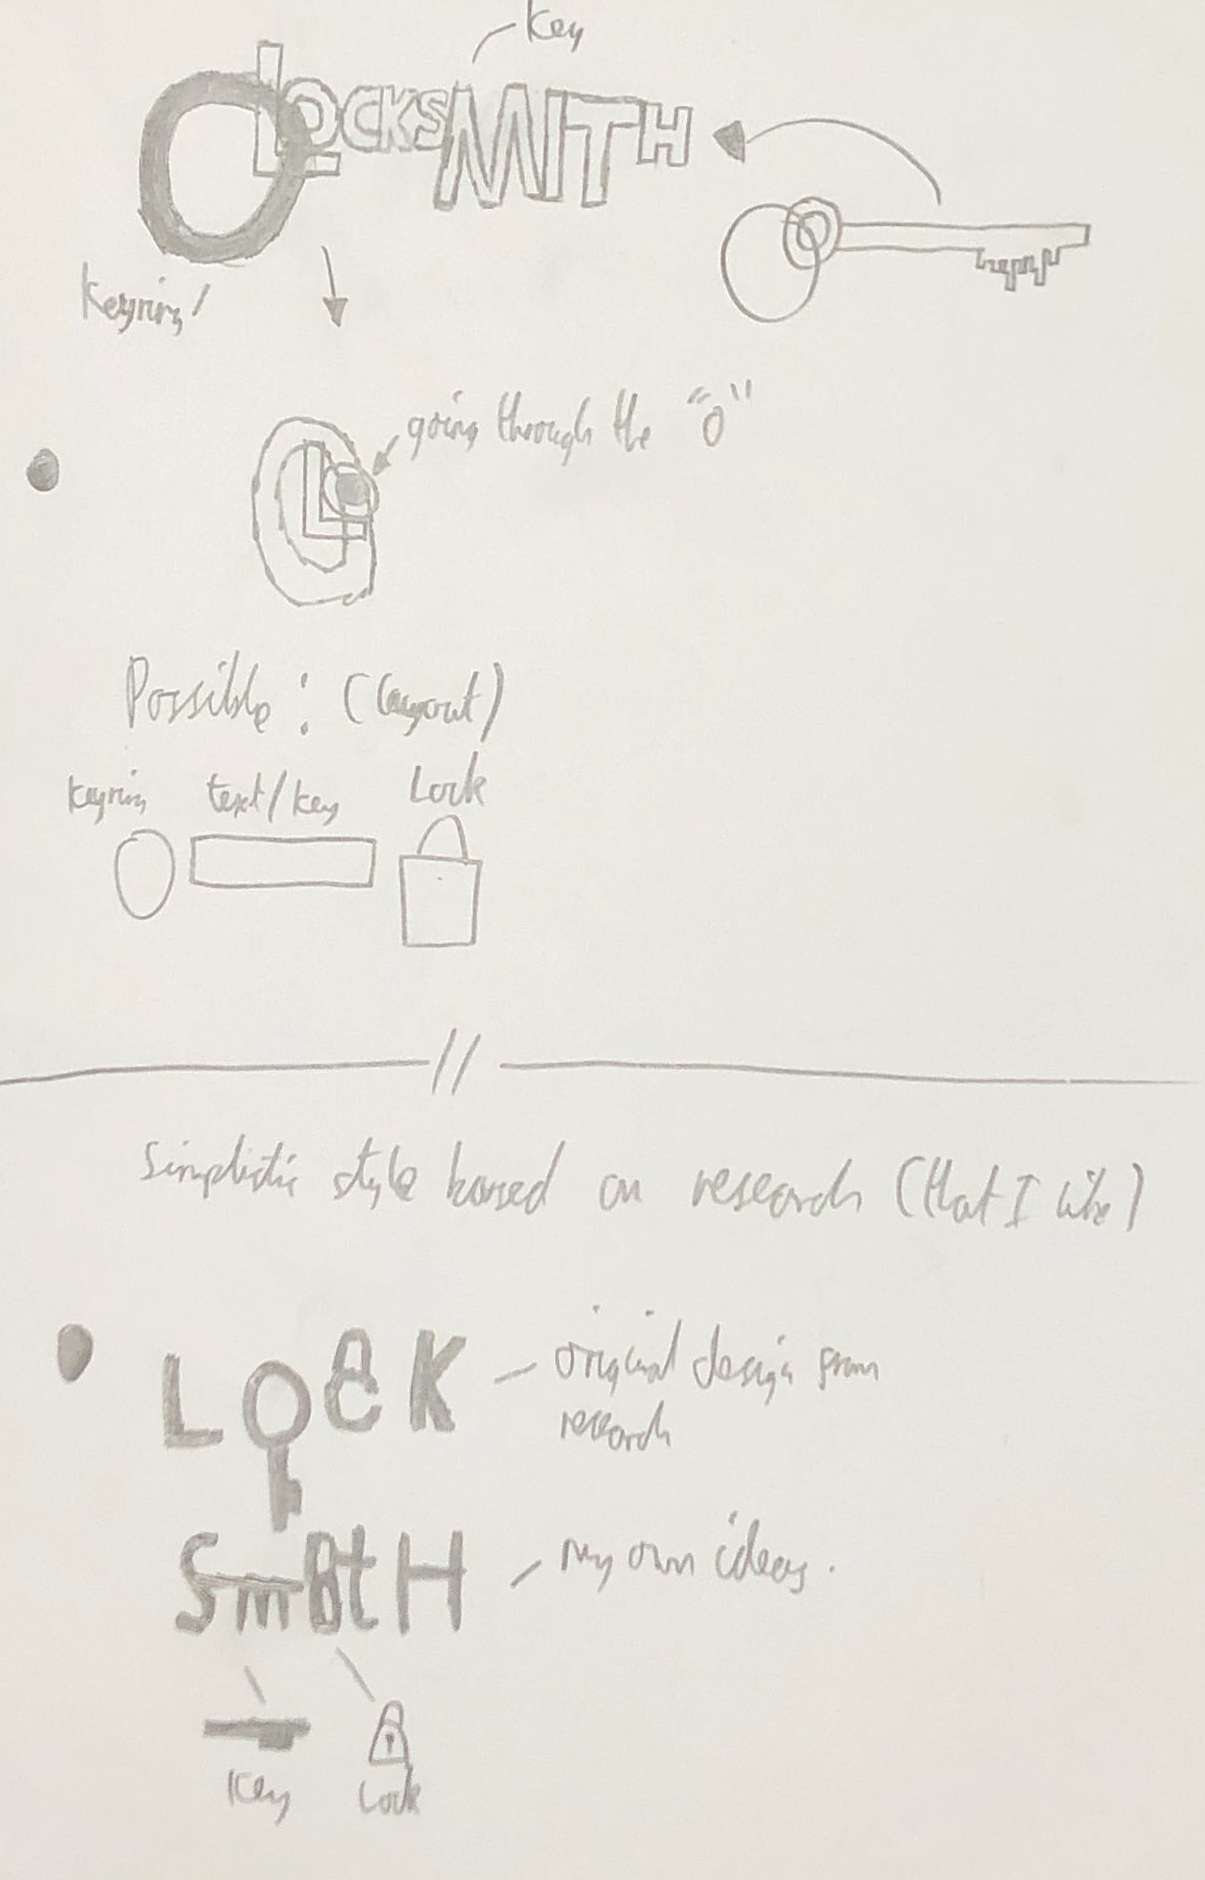 Key
LOCKSMITH
Keyring
going through the "O"
Possible: (layout)
keyring text/key Lock
Simplistic style based on research (that I like)
LOCK
original design from
research
SmitH
my own ideas.
Key Lock